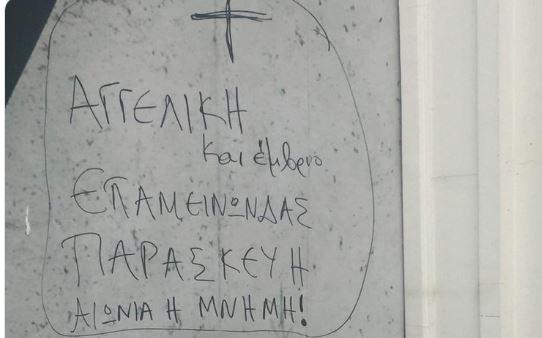 ΑΓΓΕΛΙΚΗ
και έμβρυο
ΕΠΑΜΕΙΝΩΝΔΑΣ
ΠΑΡΑΣΚΕΥΗ
ΑΙΩΝΙΑ Η ΜΝΗΜΗ!